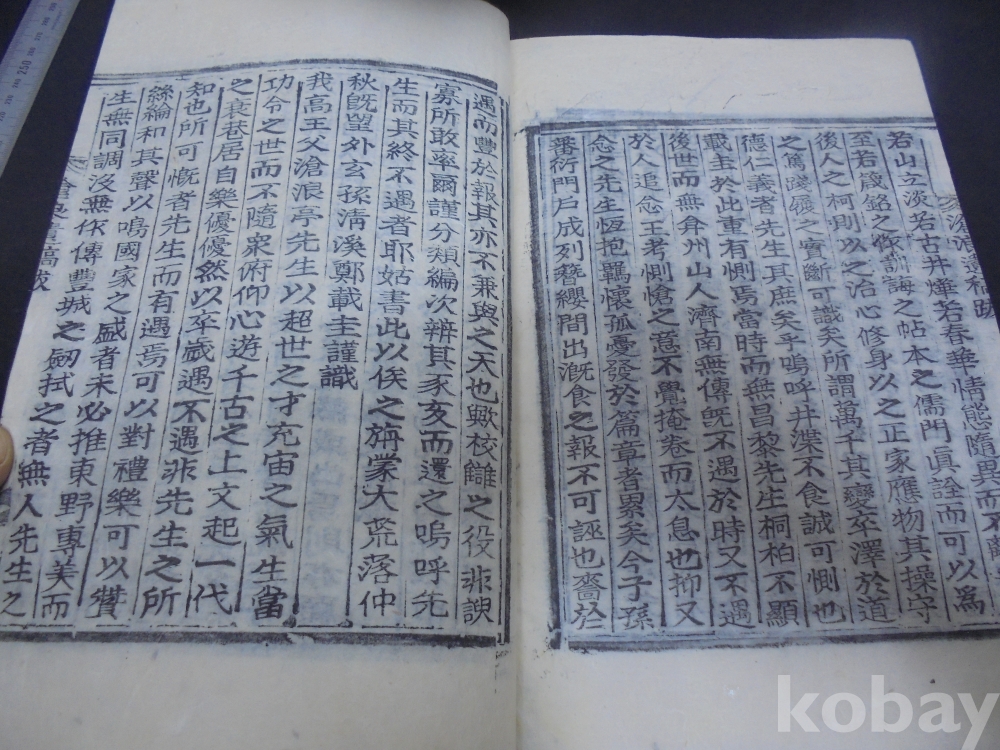 若山立淡若古井燁若春華情態隨異而不
至若箴銘之作訓誨之帖本之儒門眞詮而可以爲
後人之柯則以之治心修身以之正家應物其操守
之篤踐履之實斷可識矣所謂萬千其變卒澤於道
德仁義者先生其庶矣乎嗚呼井渫不食誠可惻也
載圭於此重有惻焉當時而無昌黎先生桐柏不顯
後世而無弇州山人濟南無傳旣不遇於時又不遇
於人追念王考惻愴之意不覺掩卷而太息也抑又
念之先生恆抱羈懷孤憂發於篇章者累矣今子孫
蕃衍門戶成列簪纓間出漑食之報不可誣也嗇於
遇而豐於報其亦不兼與之天也歟校讎之役非謏
寡所敢率爾謹分類編次辨其豕亥而還之嗚呼先
生而其終不遇者耶姑書此以俟之旃蒙大荒落仲
秋旣望外玄孫淸溪鄭載圭謹識
我高王父滄浪亭先生以超世之才充宙之氣生當
功令之世而不隨衆俯仰心遊千古之上文起一代
之衰巷居自樂優優然以卒歲遇不遇非先生之所
知也所可慨者先生而有遇焉可以對禮樂可以贊
絲綸和其聲以鳴國家之盛者未必推東野專美而
生無同調沒無作傳豐城之劒拭之者無人先生之
kobay